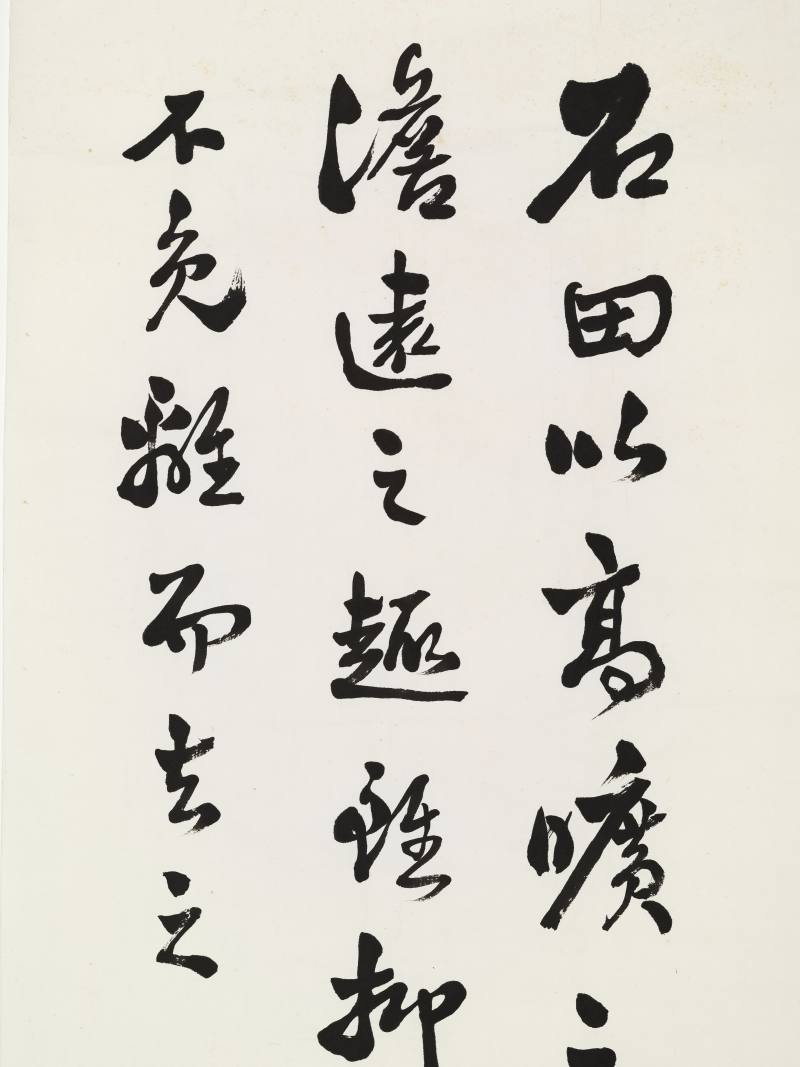 石田以高曠之
澹遠之趣雖抑
不免離而去之